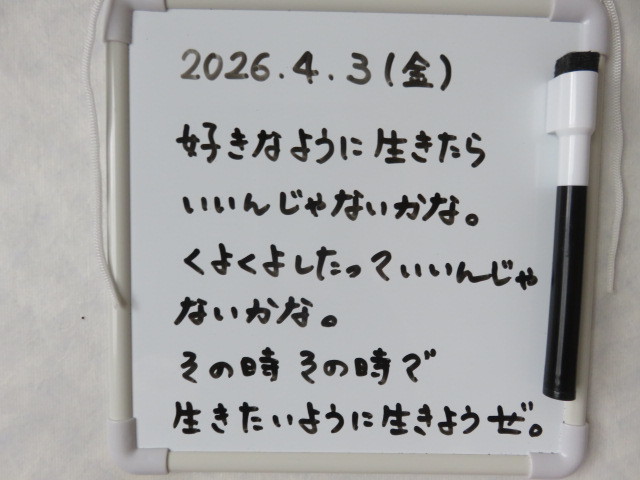 2026.4.3(金)
好きなように生きたら
いいんじゃないかな。
くよくよしたっていいんじゃ
ないかな。
その時その時で
生きたいように生きようぜ。